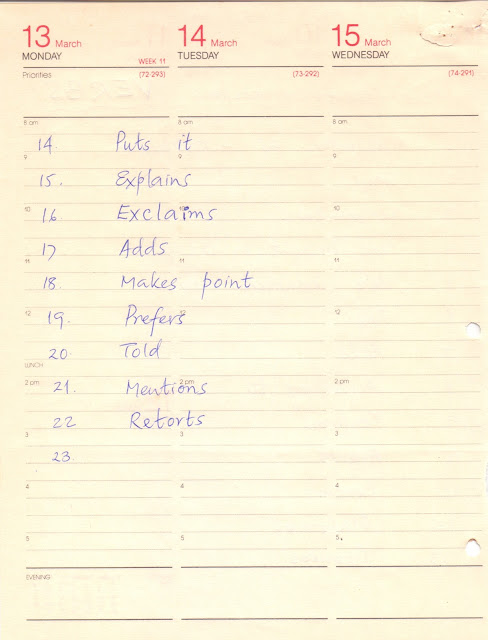 13 March 14 March 15 March
MONDAY WEEK 11 TUESDAY WEDNESDAY
Priorities (72-293) (73-292) (74-291)
8 am 8 am 8 am
14. Puts it
9 9 9
15. Explains
10 10 10
16. Exclaims
17 Adds
11 11 11
18. Makes point
12 12 12
19. Prefers
20. Told
LUNCH
2 pm 2 pm 2 pm
21. Mentions
22 Retorts
3 3 3
23
4 4 4
5 5 5
EVENING